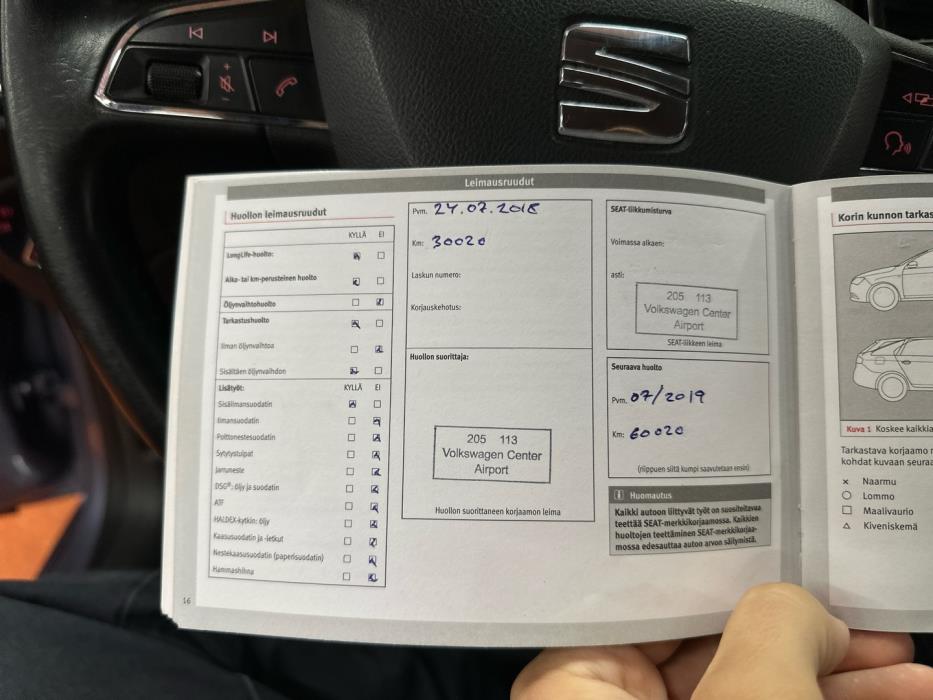 Leimausruudut
Huollon leimausruudut
KYLLÄ EI
LongLife-huolto:
Aika- tai km-perusteinen huolto
Öljynvaihtohuolto
Tarkastushuolto
Ilman öljynvaihtoa
Sisältäen öljynvaihdon
Lisätyöt: KYLLÄ EI
Sisäilmansuodatin
Ilmansuodatin
Polttonestesuodatin
Sytytystulpat
Jarruneste
DSG®: öljy ja suodatin
ATF
HALDEX-kytkin: öljy
Kaasusuodatin ja -letkut
Nestekaasusuodatin (paperisuodatin)
Hammashihna
16
Pvm. 24.07.2018
Km: 30020
Laskun numero:
Korjauskehotus:
Huollon suorittaja:
205 113
Volkswagen Center
Airport
Huollon suorittaneen korjaamon leima
SEAT-liikkumisturva
Voimassa alkaen:
asti:
205 113
Volkswagen Center
Airport
SEAT-liikkeen leima
Seuraava huolto
Pvm. 07/2019
Km: 60020
(riippuen siitä kumpi saavutetaan ensin)
i Huomautus
Kaikki autoon liittyvät työt on suositeltavaa
teettää SEAT-merkkikorjaamossa. Kaikkien
huoltojen teettäminen SEAT-merkkikorjaa-
mossa edesauttaa auton arvon säilymistä.
Korin kunnon tarkas
Kuva 1 Koskee kaikkia
Tarkastava korjaamo
kohdat kuvaan seuraa
× Naarmu
○ Lommo
□ Maalivaurio
△ Kiveniskemä